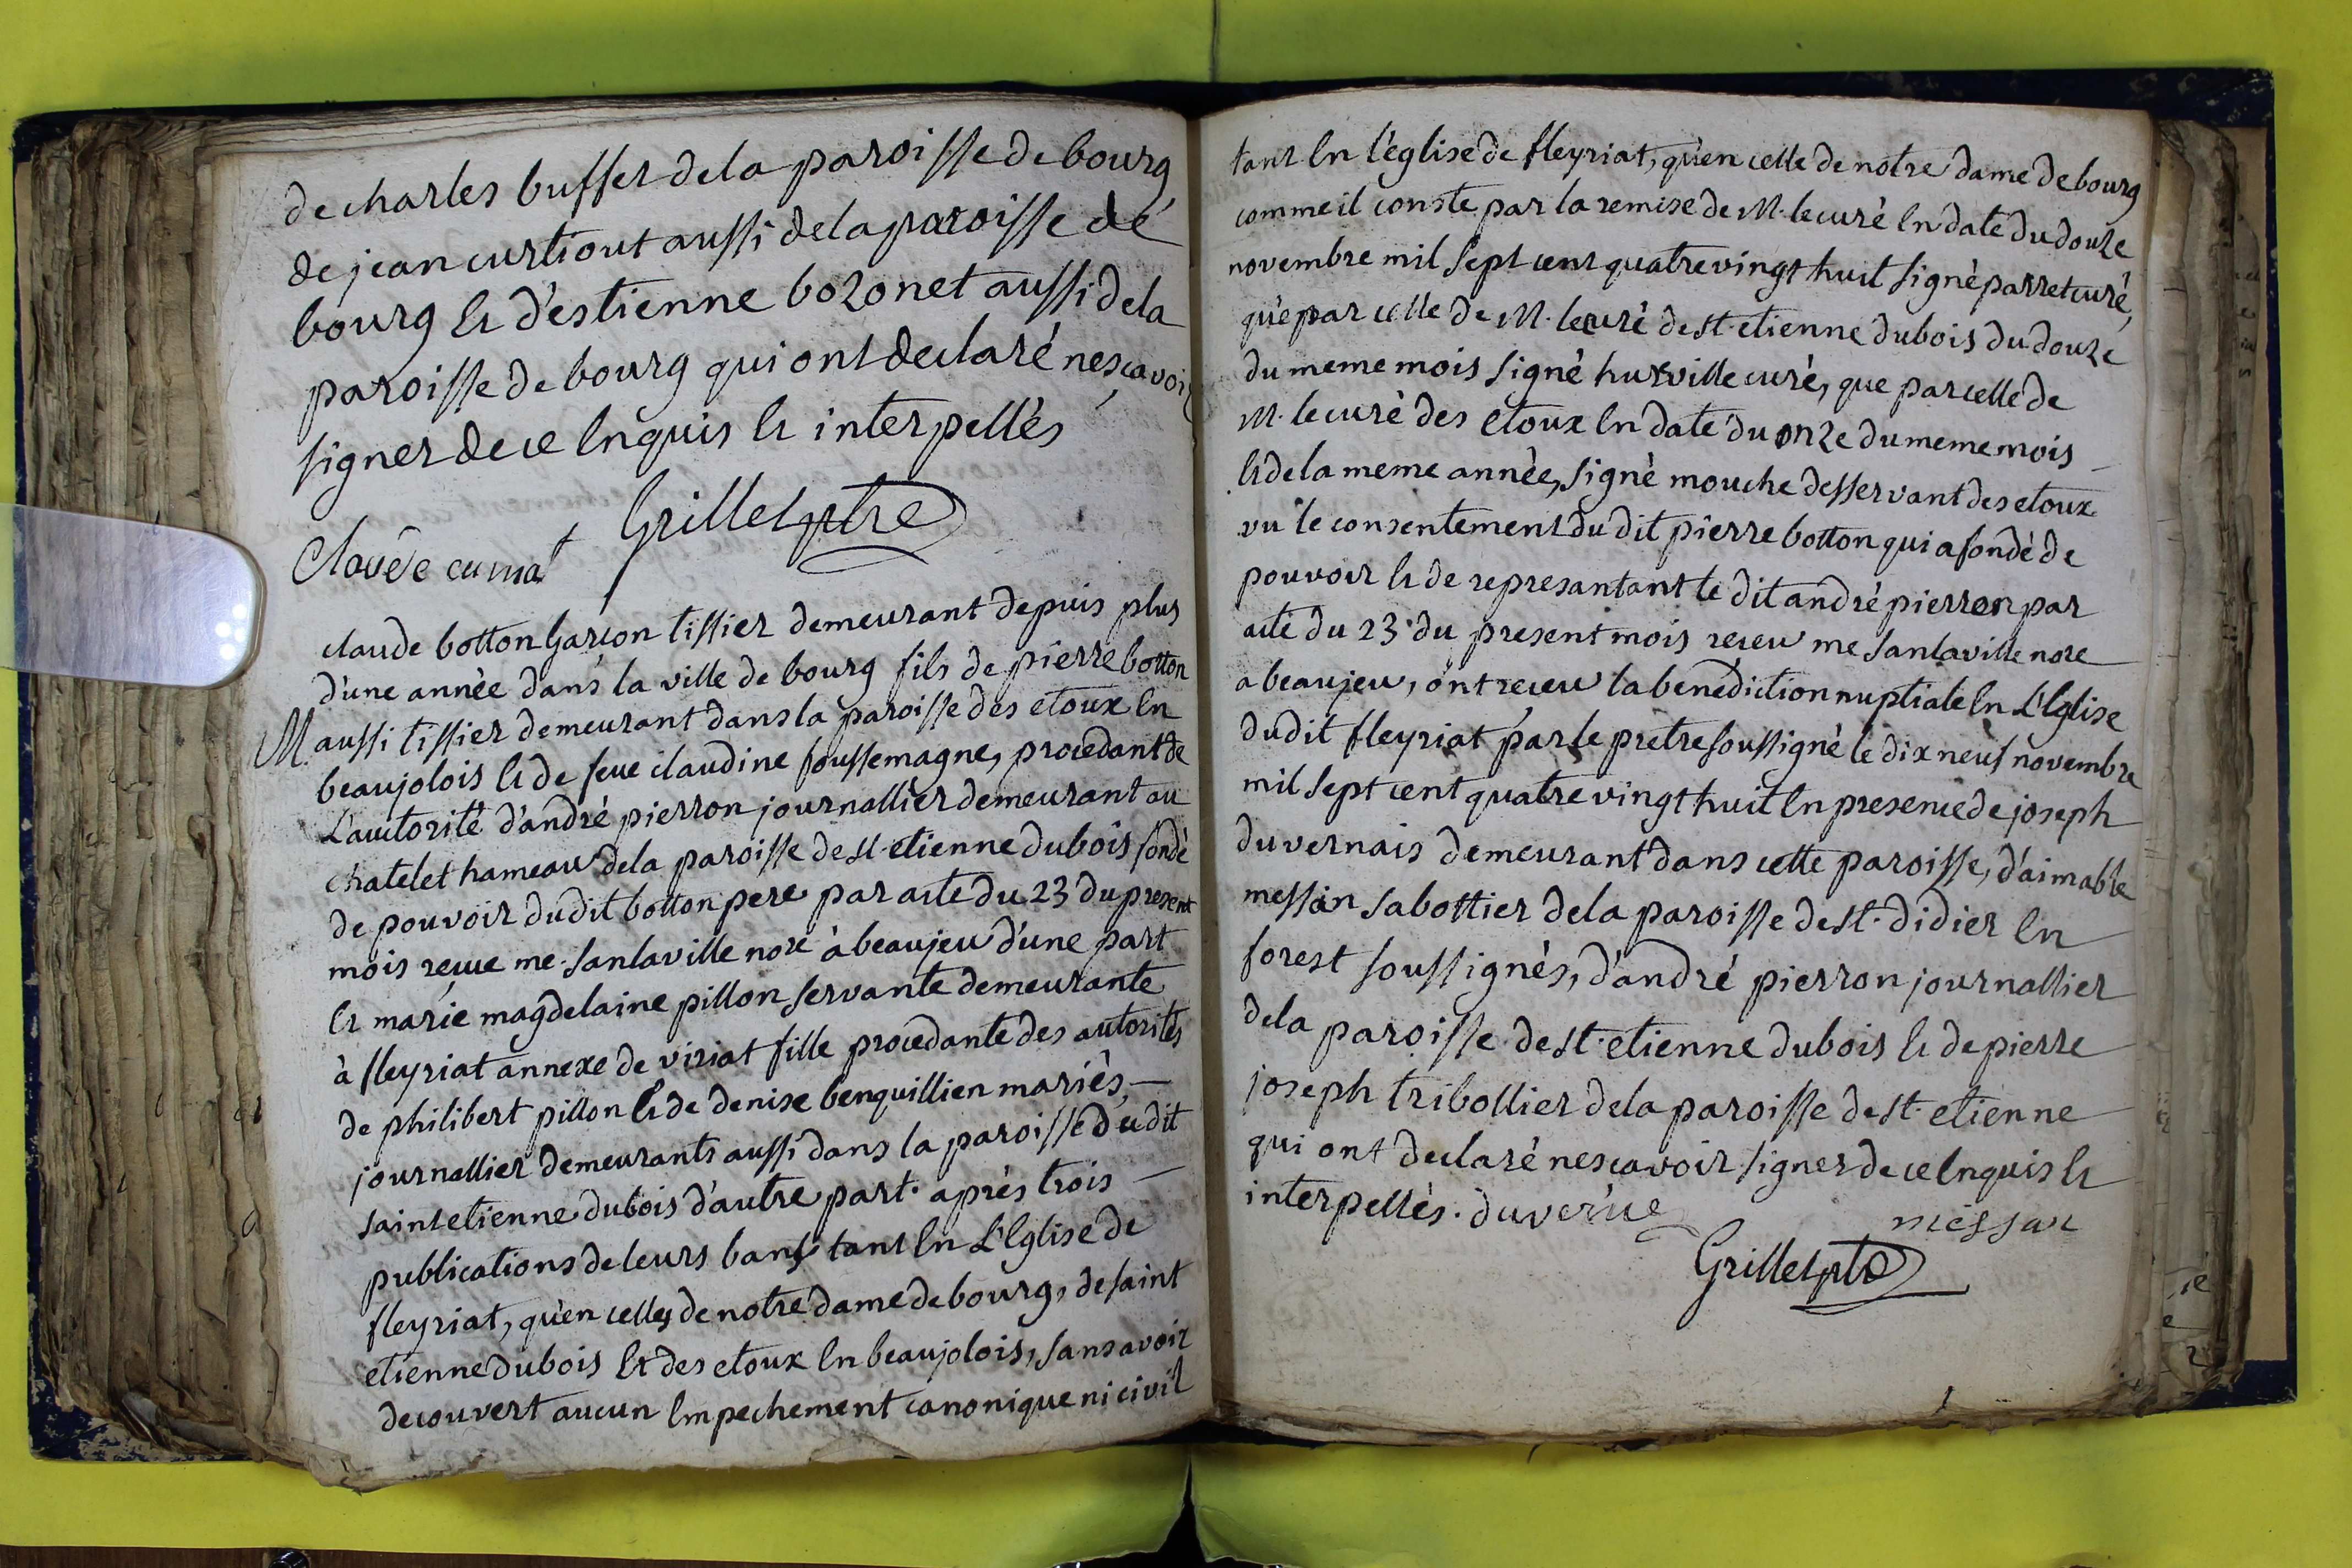 de charles buffet de la paroisse de bourg
de jean curtiout aussi de la paroisse de
bourg et d'estienne bozonet aussi de la
paroisse de bourg qui ont declaré ne sçavoir
signer de ce enquis et interpellés
Grillet ptre
Claude cuma
claude botton Garcon tissier demeurant depuis plus
d'une année dans la ville de bourg fils de pierre botton
M. aussi tissier demeurant dans la paroisse des etoux en
beaujolois et de feue claudine foussemagne, procedant de
L'autorité d'andré pierron journallier demeurant au
chatelet hameau de la paroisse de st. etienne dubois fondé
de pouvoir dudit botton pere par acte du 23 du present
mois reçue me. sanlaville nore à beaujeu d'une part
et marie magdelaine pillon servante demeurante
à fleyriat annexe de viriat fille procedante des autorités
de philibert pillon et de denise benquillien mariés,
journallier demeurants aussi dans la paroisse dudit
saint etienne dubois d'autre part. après trois
publications de leurs bans tant en L'Eglise de
fleyriat, qu'en celles de notre dame de bourg, de saint
etienne dubois et des etoux en beaujolois, sans avoir
decouvert aucun empechement canonique ni civil
tant en l'église de fleyriat, qu'en celle de notre dame de bourg
comme il conste par la remise de M. le curé en date du douze
novembre mil sept cent quatre vingt huit signé parret curé,
que par celle de M. le curé de st. etienne dubois du douze
du meme mois signé hurville curé, que par celle de
M. le curé des etoux en date du onze du meme mois
et de la meme année, signé mouche desservant des etoux
vu le consentement du dit pierre botton qui a fondé de
pouvoir et de represantant le dit andré pierron par
acte du 23. du present mois receu me sanlaville nore
a beaujeu, ont receu la benediction nuptiale en L'Eglise
dudit fleyriat par le pretre soussigné le dix neuf novembre
mil sept cent quatre vingt huit en presence de joseph
duvernais demeurant dans cette paroisse, d'aimable
messan sabottier de la paroisse de st. didier en
forest soussignés, d'andré pierron journallier
de la paroisse de st. etienne dubois et de pierre
joseph tribollier de la paroisse de st. etienne
qui ont declaré ne scavoir signer de ce enquis et
interpellés. duverne
messan
Grillet ptre